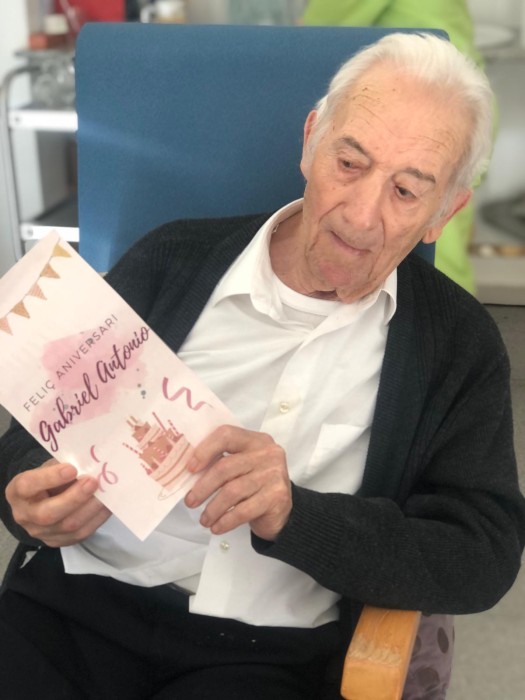 FELIÇ ANIVERSARI
Gabriel Antonio